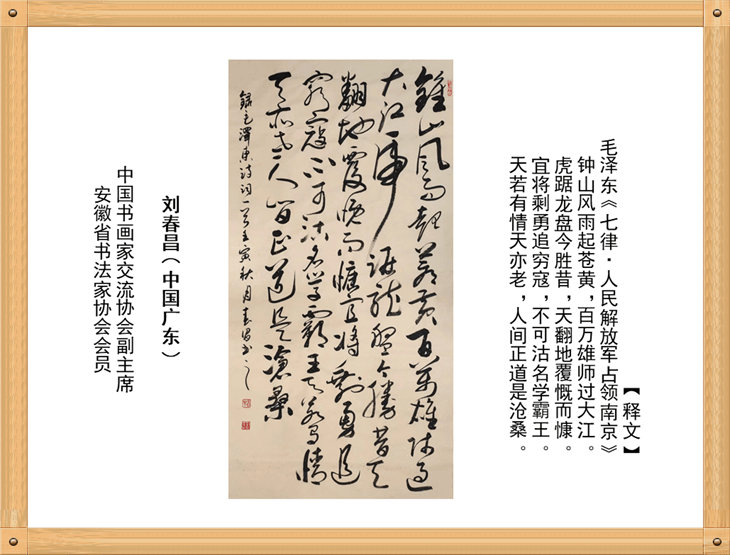 【释文】
毛泽东《七律·人民解放军占领南京》
钟山风雨起苍黄，百万雄师过大江。
虎踞龙盘今胜昔，天翻地覆慨而慷。
宜将剩勇追穷寇，不可沽名学霸王。
天若有情天亦老，人间正道是沧桑。
鍾山風雨起蒼黃百萬雄師過
大江虎踞龍盤今勝昔天
翻地覆慨而慷宜將剩勇追
窮寇不可沽名學霸王天若有情
天亦老人間正道是滄桑
錄毛澤東詩詞一首壬寅秋月春昌書之
刘春昌（中国广东）
中国书画家交流协会副主席
安徽省书法家协会会员